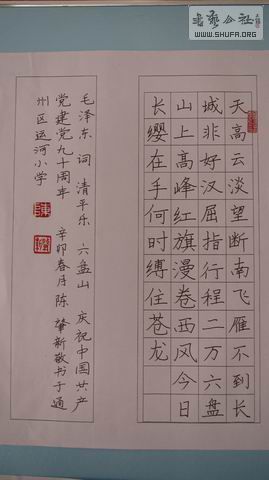 书艺公社
WWW.SHUFA.ORG
天高云淡望断南飞雁不到长
城非好汉屈指行程二万六盘
山上高峰红旗漫卷西风今日
长缨在手何时缚住苍龙
毛泽东 词 清平乐 六盘山 庆祝中国共产
党建党九十周年 辛卯春月陈肇新敬书于通
州区运河小学